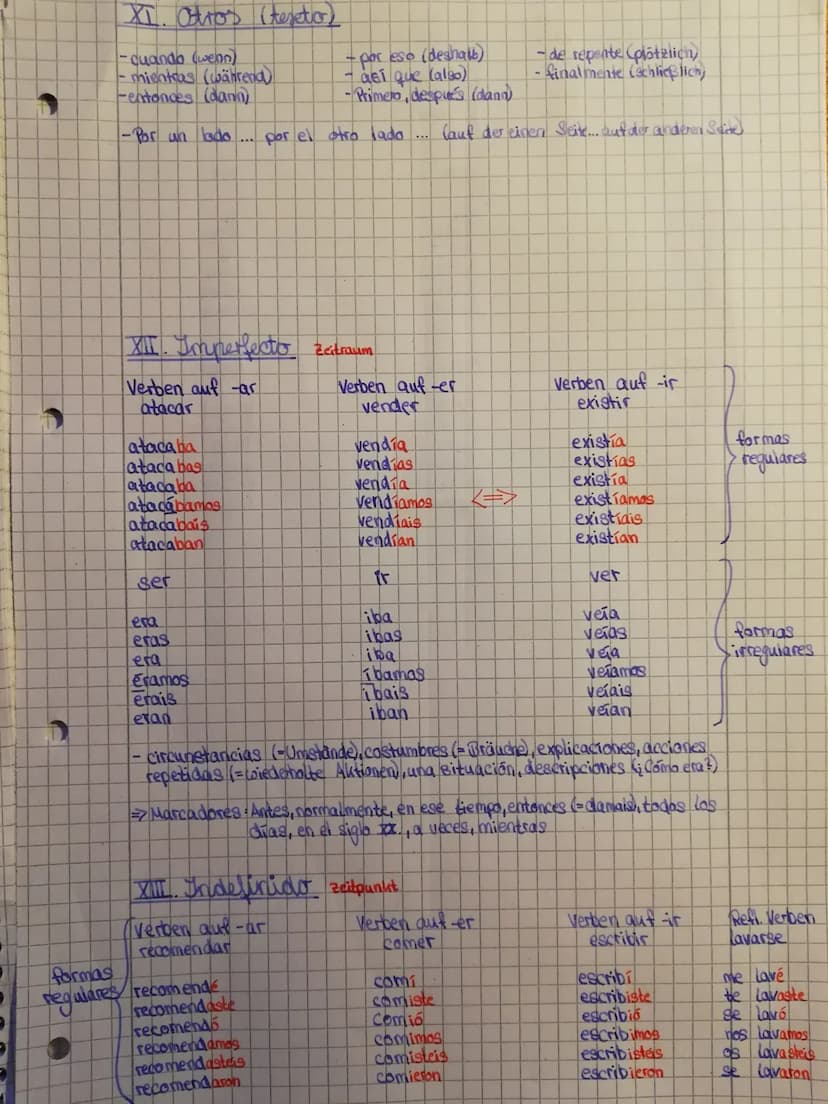 XI. Otros (texto)
- quando (wenn) - por eso (deshalb) - de repente (plötzlich)
- mientras (während) - así que (also) - finalmente (schließlich)
- entonces (dann) - Primero, después (dann)
- Por un lado ... por el otro lado ... (auf der einen Seite... auf der anderen Seite)
XII. Imperfecto Zeitraum
Verben auf -ar Verben auf -er Verben auf -ir
atacar vender existir
atacaba vendía existía
atacabas vendías existías
atacaba vendía existía
atacábamos vendíamos <=> existíamos
atacabais vendíais existíais
atacaban vendían existían
formas
regulares
ser ir ver
era iba veía
eras ibas veías
era iba veía
éramos íbamos veíamos
erais ibais veíais
eran iban veían
formas
irregulares
- circunstancias (=Umstände), costumbres (=Bräuche), explicaciones, acciones
repetidas (=wiederholte Aktionen), una situación, descripciones (¿Cómo era?)
=> Marcadores: Antes, normalmente, en ese tiempo, entonces (=damals), todos los
días, en el siglo XX., a veces, mientras
XIII. Indefinido Zeitpunkt
Verben auf -ar Verben auf -er Verben auf -ir Refl. Verben
recomendar comer escribir lavarse
formas
regulares
recomendé comí escribí me lavé
recomendaste comiste escribiste te lavaste
recomendó comió escribió se lavó
recomendamos comimos escribimos nos lavamos
recomendasteis comisteis escribisteis os lavasteis
recomendaron comieron escribieron se lavaron